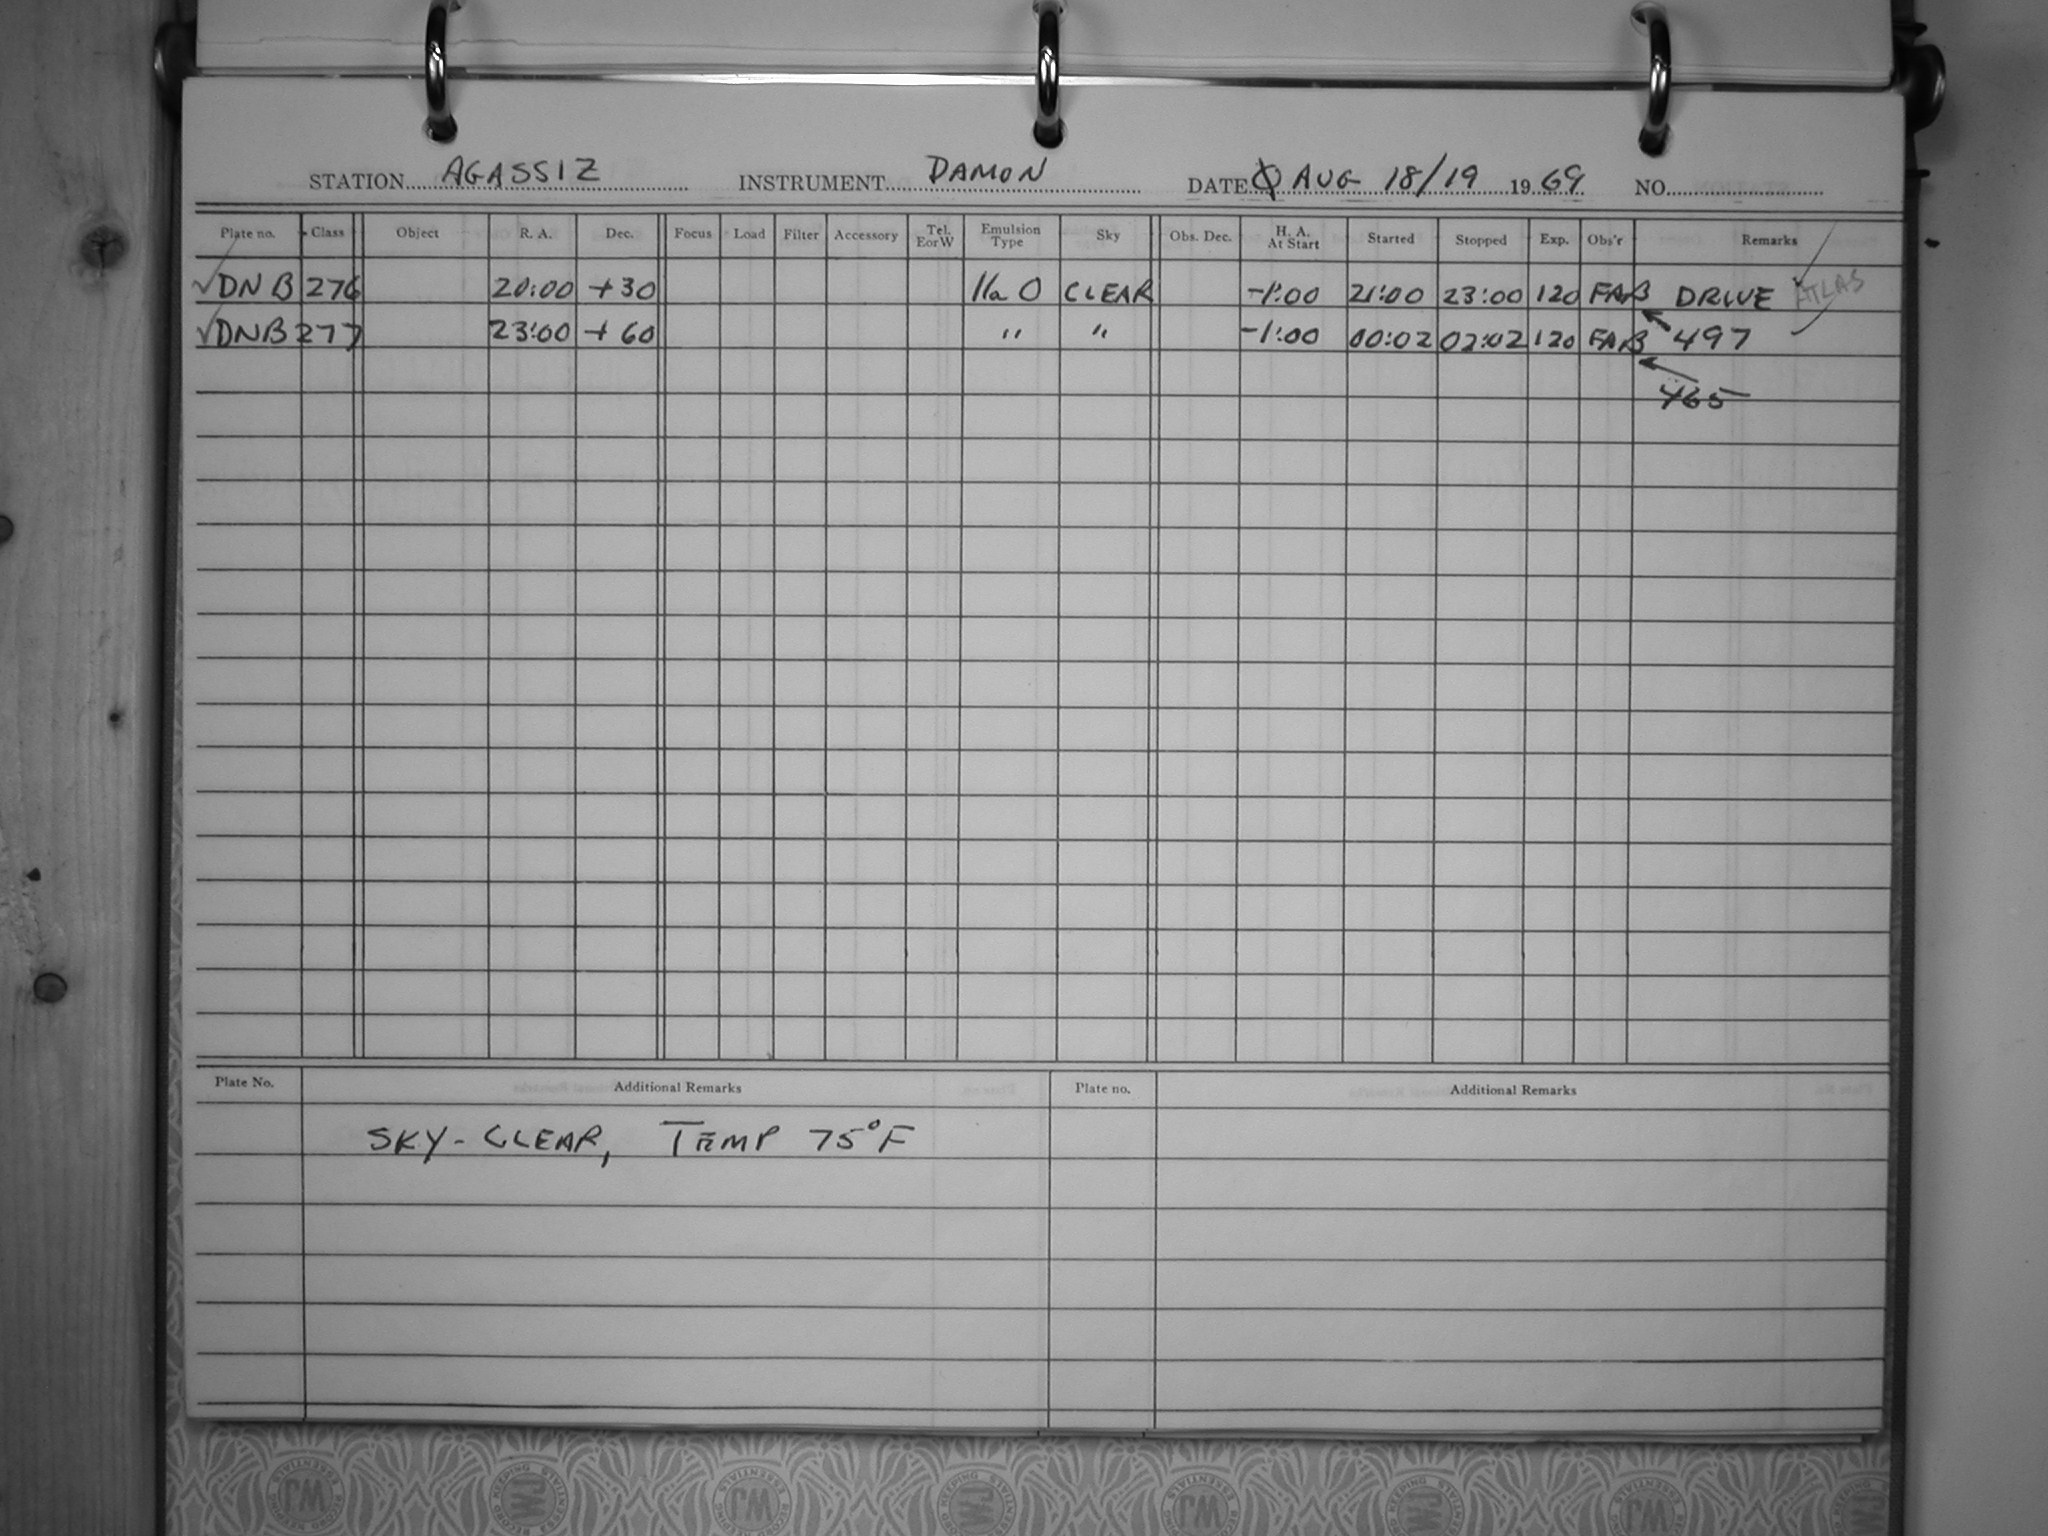 STATION AGASSIZ INSTRUMENT DAMON DATE AUG 18/19 1969 NO.
Plate no. Class Object R. A. Dec. Focus Load Filter Accessory Tel. E or W Emulsion Type Sky Obs. Dec. H. A. At Start Started Stopped Exp. Obs'r Remarks
√DNB 276 20:00 +30 IIa O CLEAR -1:00 21:00 23:00 120 FAB DRIVE ATLAS
√DNB 277 23:00 +60 " " -1:00 00:02 02:02 120 FAB 497
465
Plate No. Additional Remarks Plate no. Additional Remarks
SKY - CLEAR, TEMP 75°F
WJ RECORD KEEPING ESSENTIALS